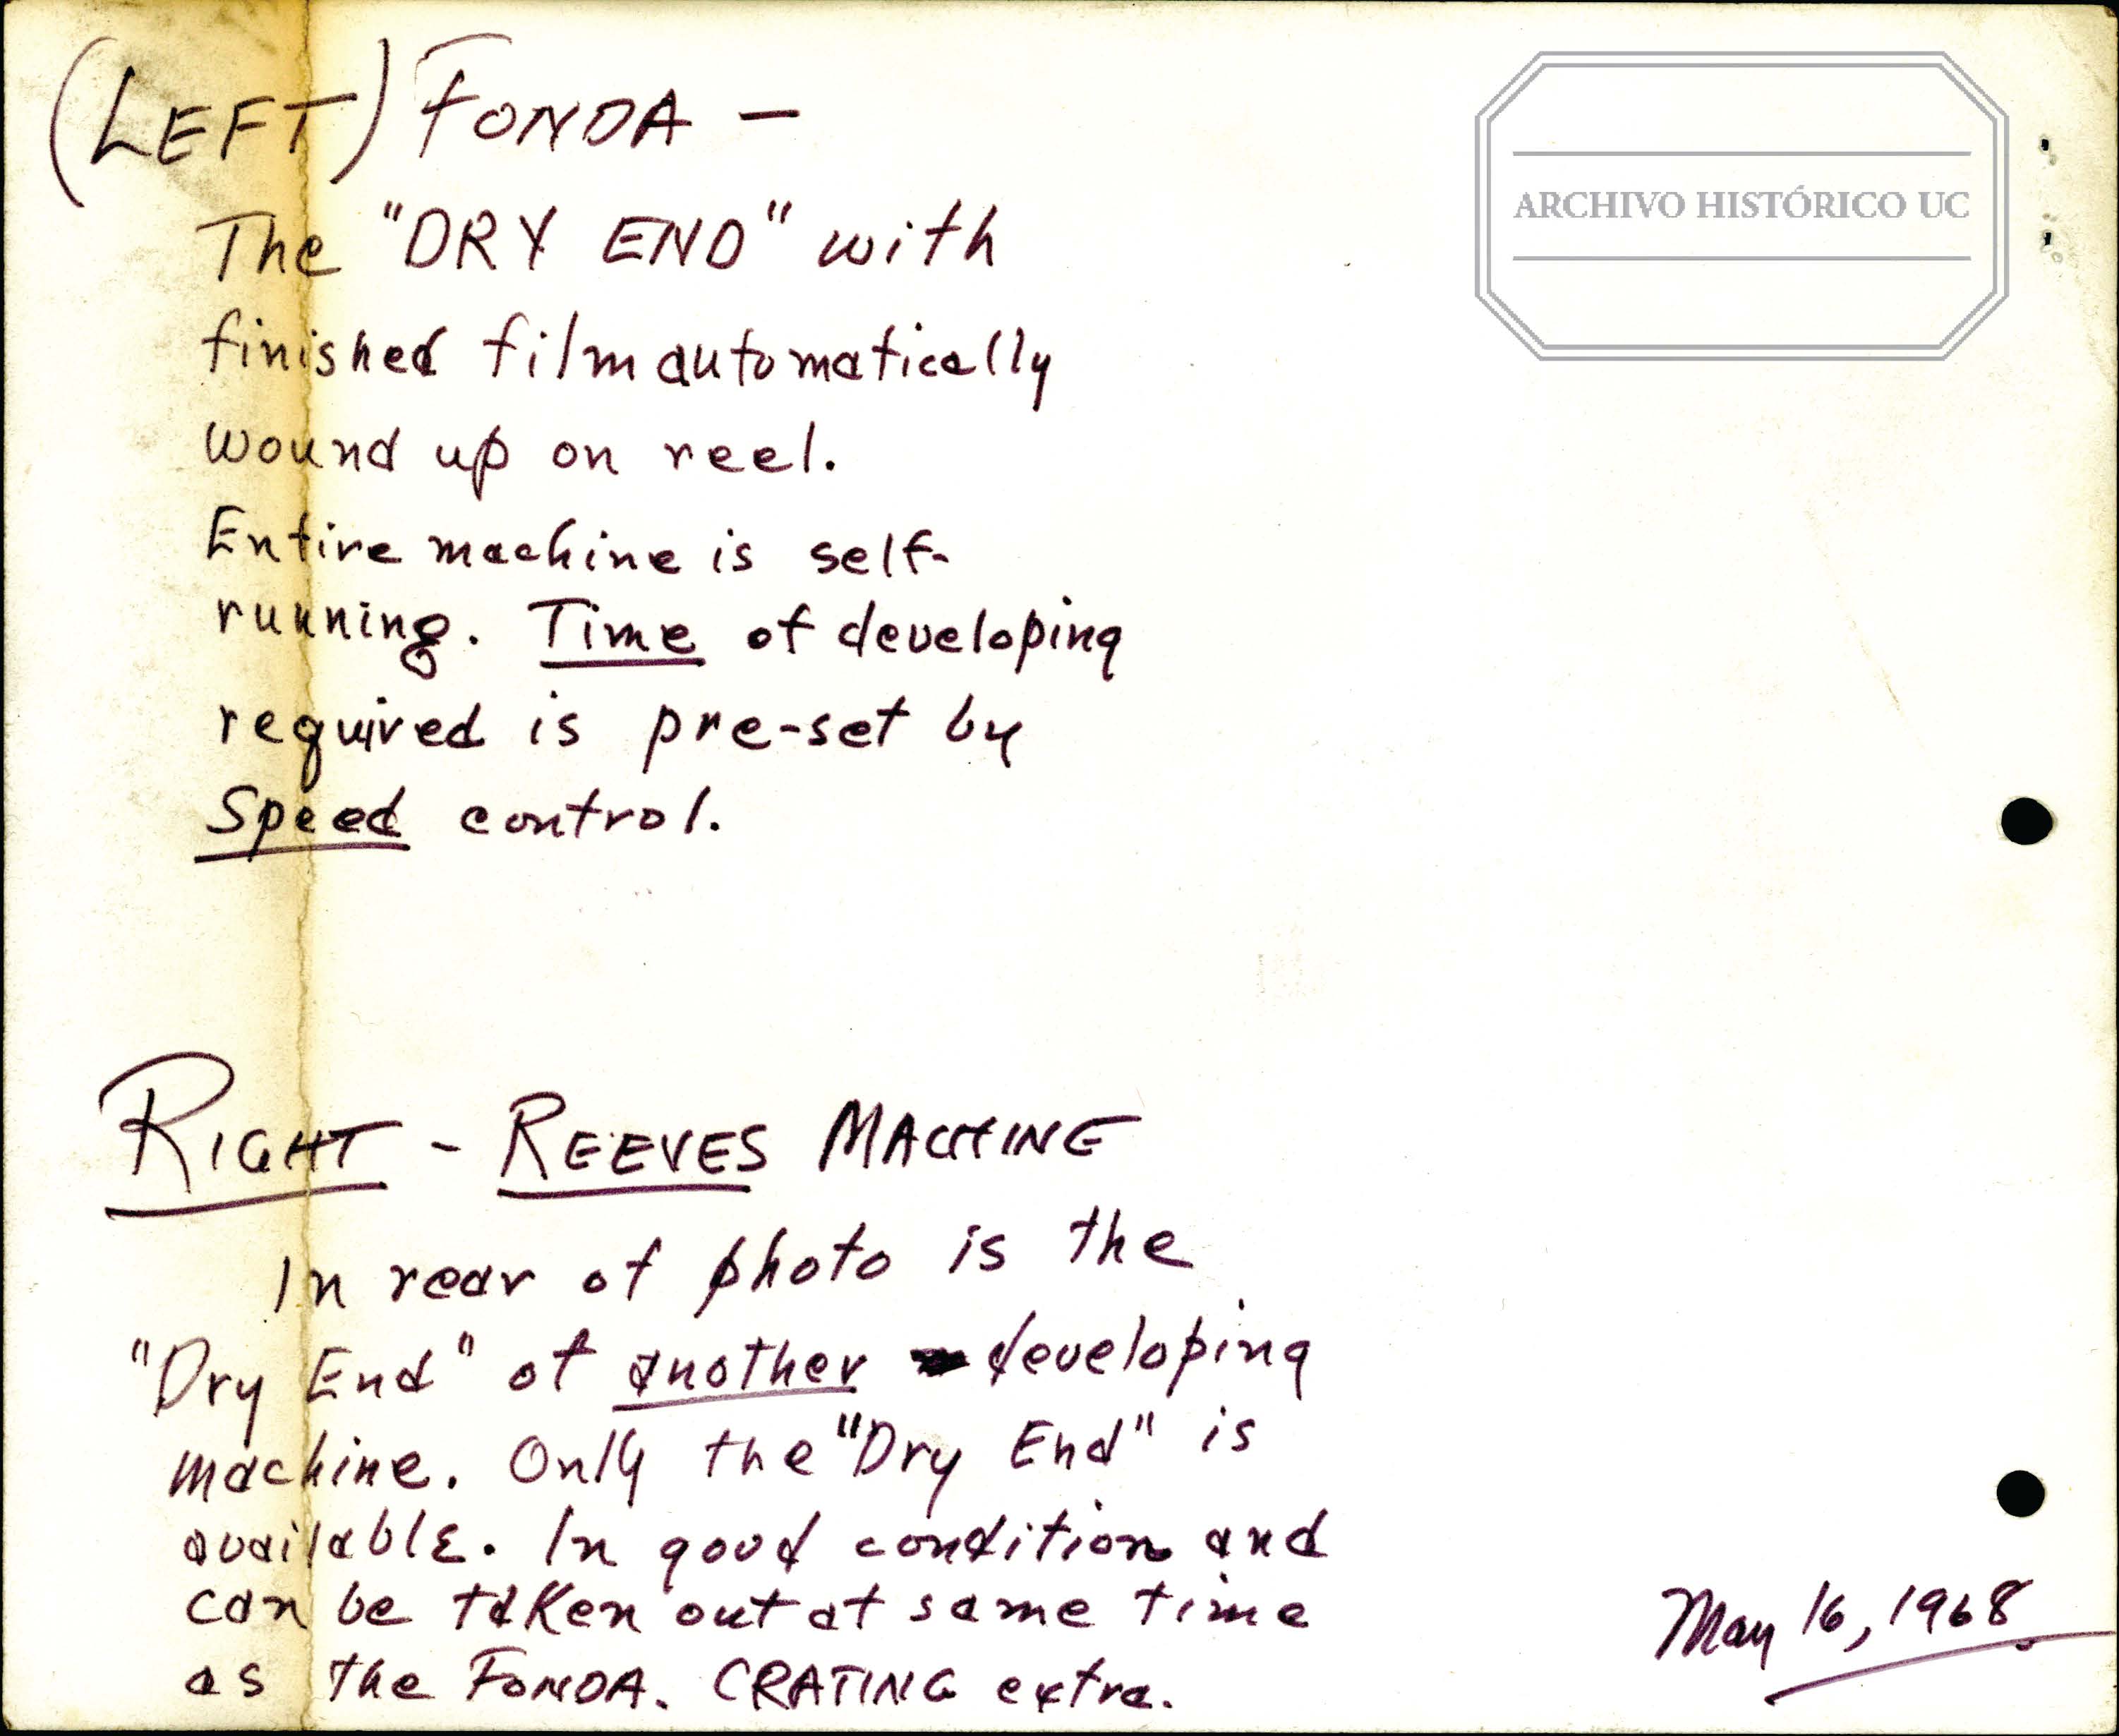 (LEFT) FONDA -
ARCHIVO HISTÓRICO UC
The "DRY END" with
finished film automatically
wound up on reel.
Entire machine is self-
running. Time of developing
required is pre-set by
Speed control.
RIGHT - REEVES MACHINE
In rear of photo is the
"Dry End" of another developing
machine. Only the "Dry End" is
available. In good condition and
can be taken out at same time
as the FONDA. CRATING extra.
May 16, 1968.